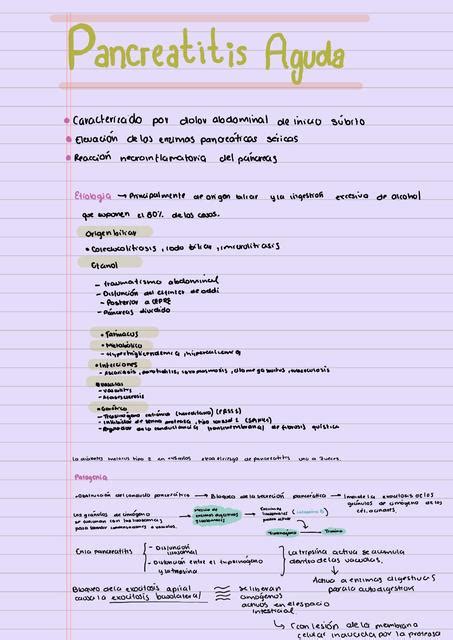 Pancreatitis Aguda
Caracterizado por dolor abdominal de inicio súbito
Elevación de las enzimas pancreáticas séricas
Reacción necroinflamatoria del páncreas
Etiología → Principalmente de origen biliar y la ingestión excesiva de alcohol
que suponen el 80% de los casos.
Origen biliar
• Coledocolitiasis, lodo biliar, microlitiasis
Etanol
- traumatismo abdominal
- Disfunción del esfínter de oddi
- Posterior a CEPRE
- Páncreas dividido
• Fármacos
• Metabólico
- Hipertrigliceridemia, hipercalcemia
• Infecciones
- Ascariasis, parotiditis,
Vascular
- vasculitis
- Ateroesclerosis
• Genética
- Tripsinógeno catiónico (hereditario) (PRSS1)
- Inhibidor de serina proteasa, tipo Kazal 1 (SPINK1)
- Regulador de la conductancia transmembranal de fibrosis quística
La diabetes mellitus tipo 2 en estudios eleva el riesgo de pancreatitis
Patogenia
Obstrucción del conducto pancreático → Bloqueo de la secreción pancreática → Impide la exocitosis de los
gránulos de zimógeno de las
cél. acinares.
Los gránulos de zimógeno
se fusionan con los lisosomas
para formar
Mezcla de
enzimas digestivas
y lisosomales
Enzimas
lisosomales (catepsina B)
pueden activar
Tripsinógeno → Tripsina
En la pancreatitis
- Disfunción
lisosomal
- Disfunción entre el tripsinógeno
y la tripsina
La tripsina activa se acumula
dentro de las vacuolas.
Activa a enzimas digestivas
para la autodigestión
Bloqueo de la exocitosis apical
causa la exocitosis basolateral
Se liberan
zimógenos
activos en el espacio
intersticial.
↳ con lesión de la membrana
celular inducida por la proteasa